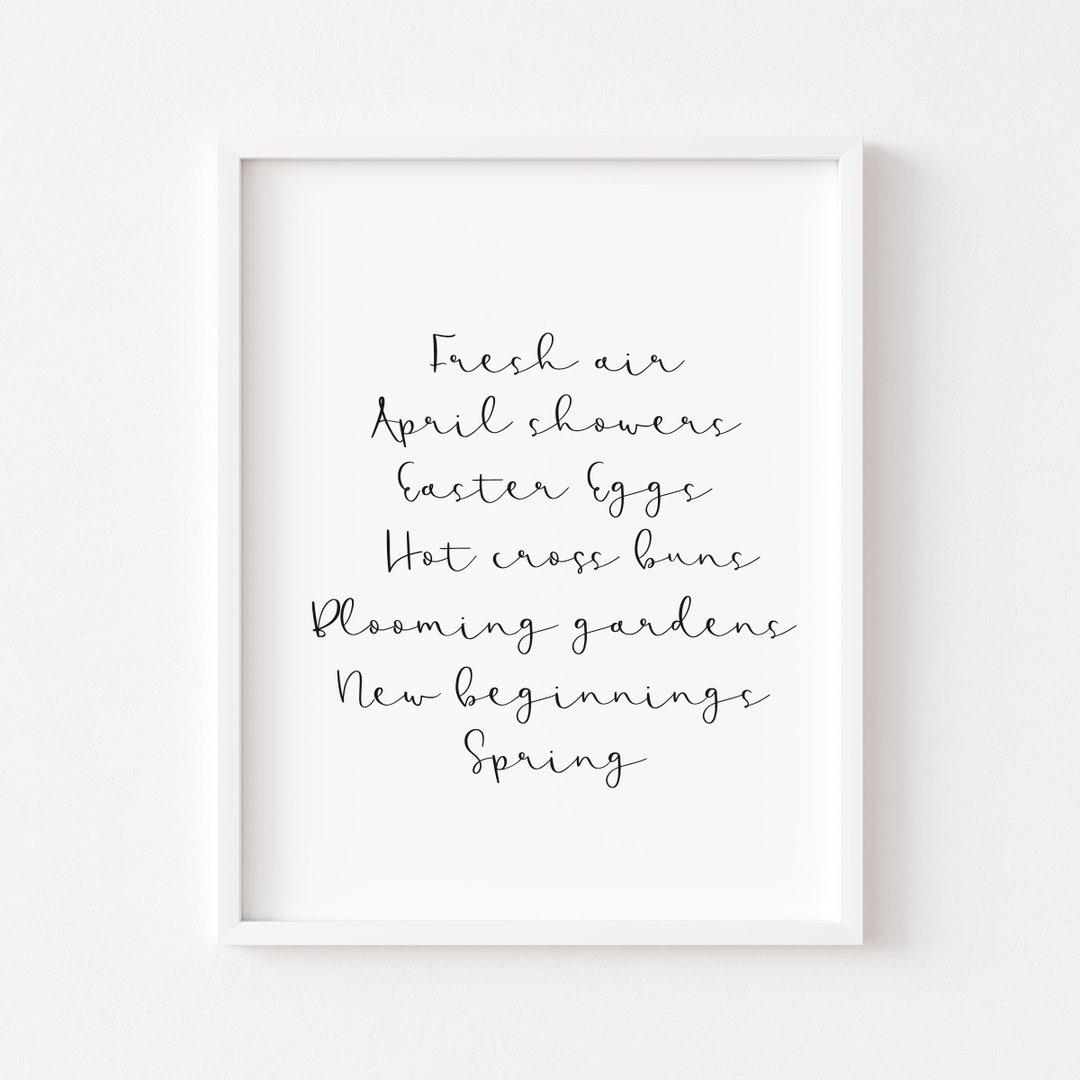 Fresh air
April showers
Easter Eggs
Hot cross buns
Blooming gardens
New beginnings
Spring